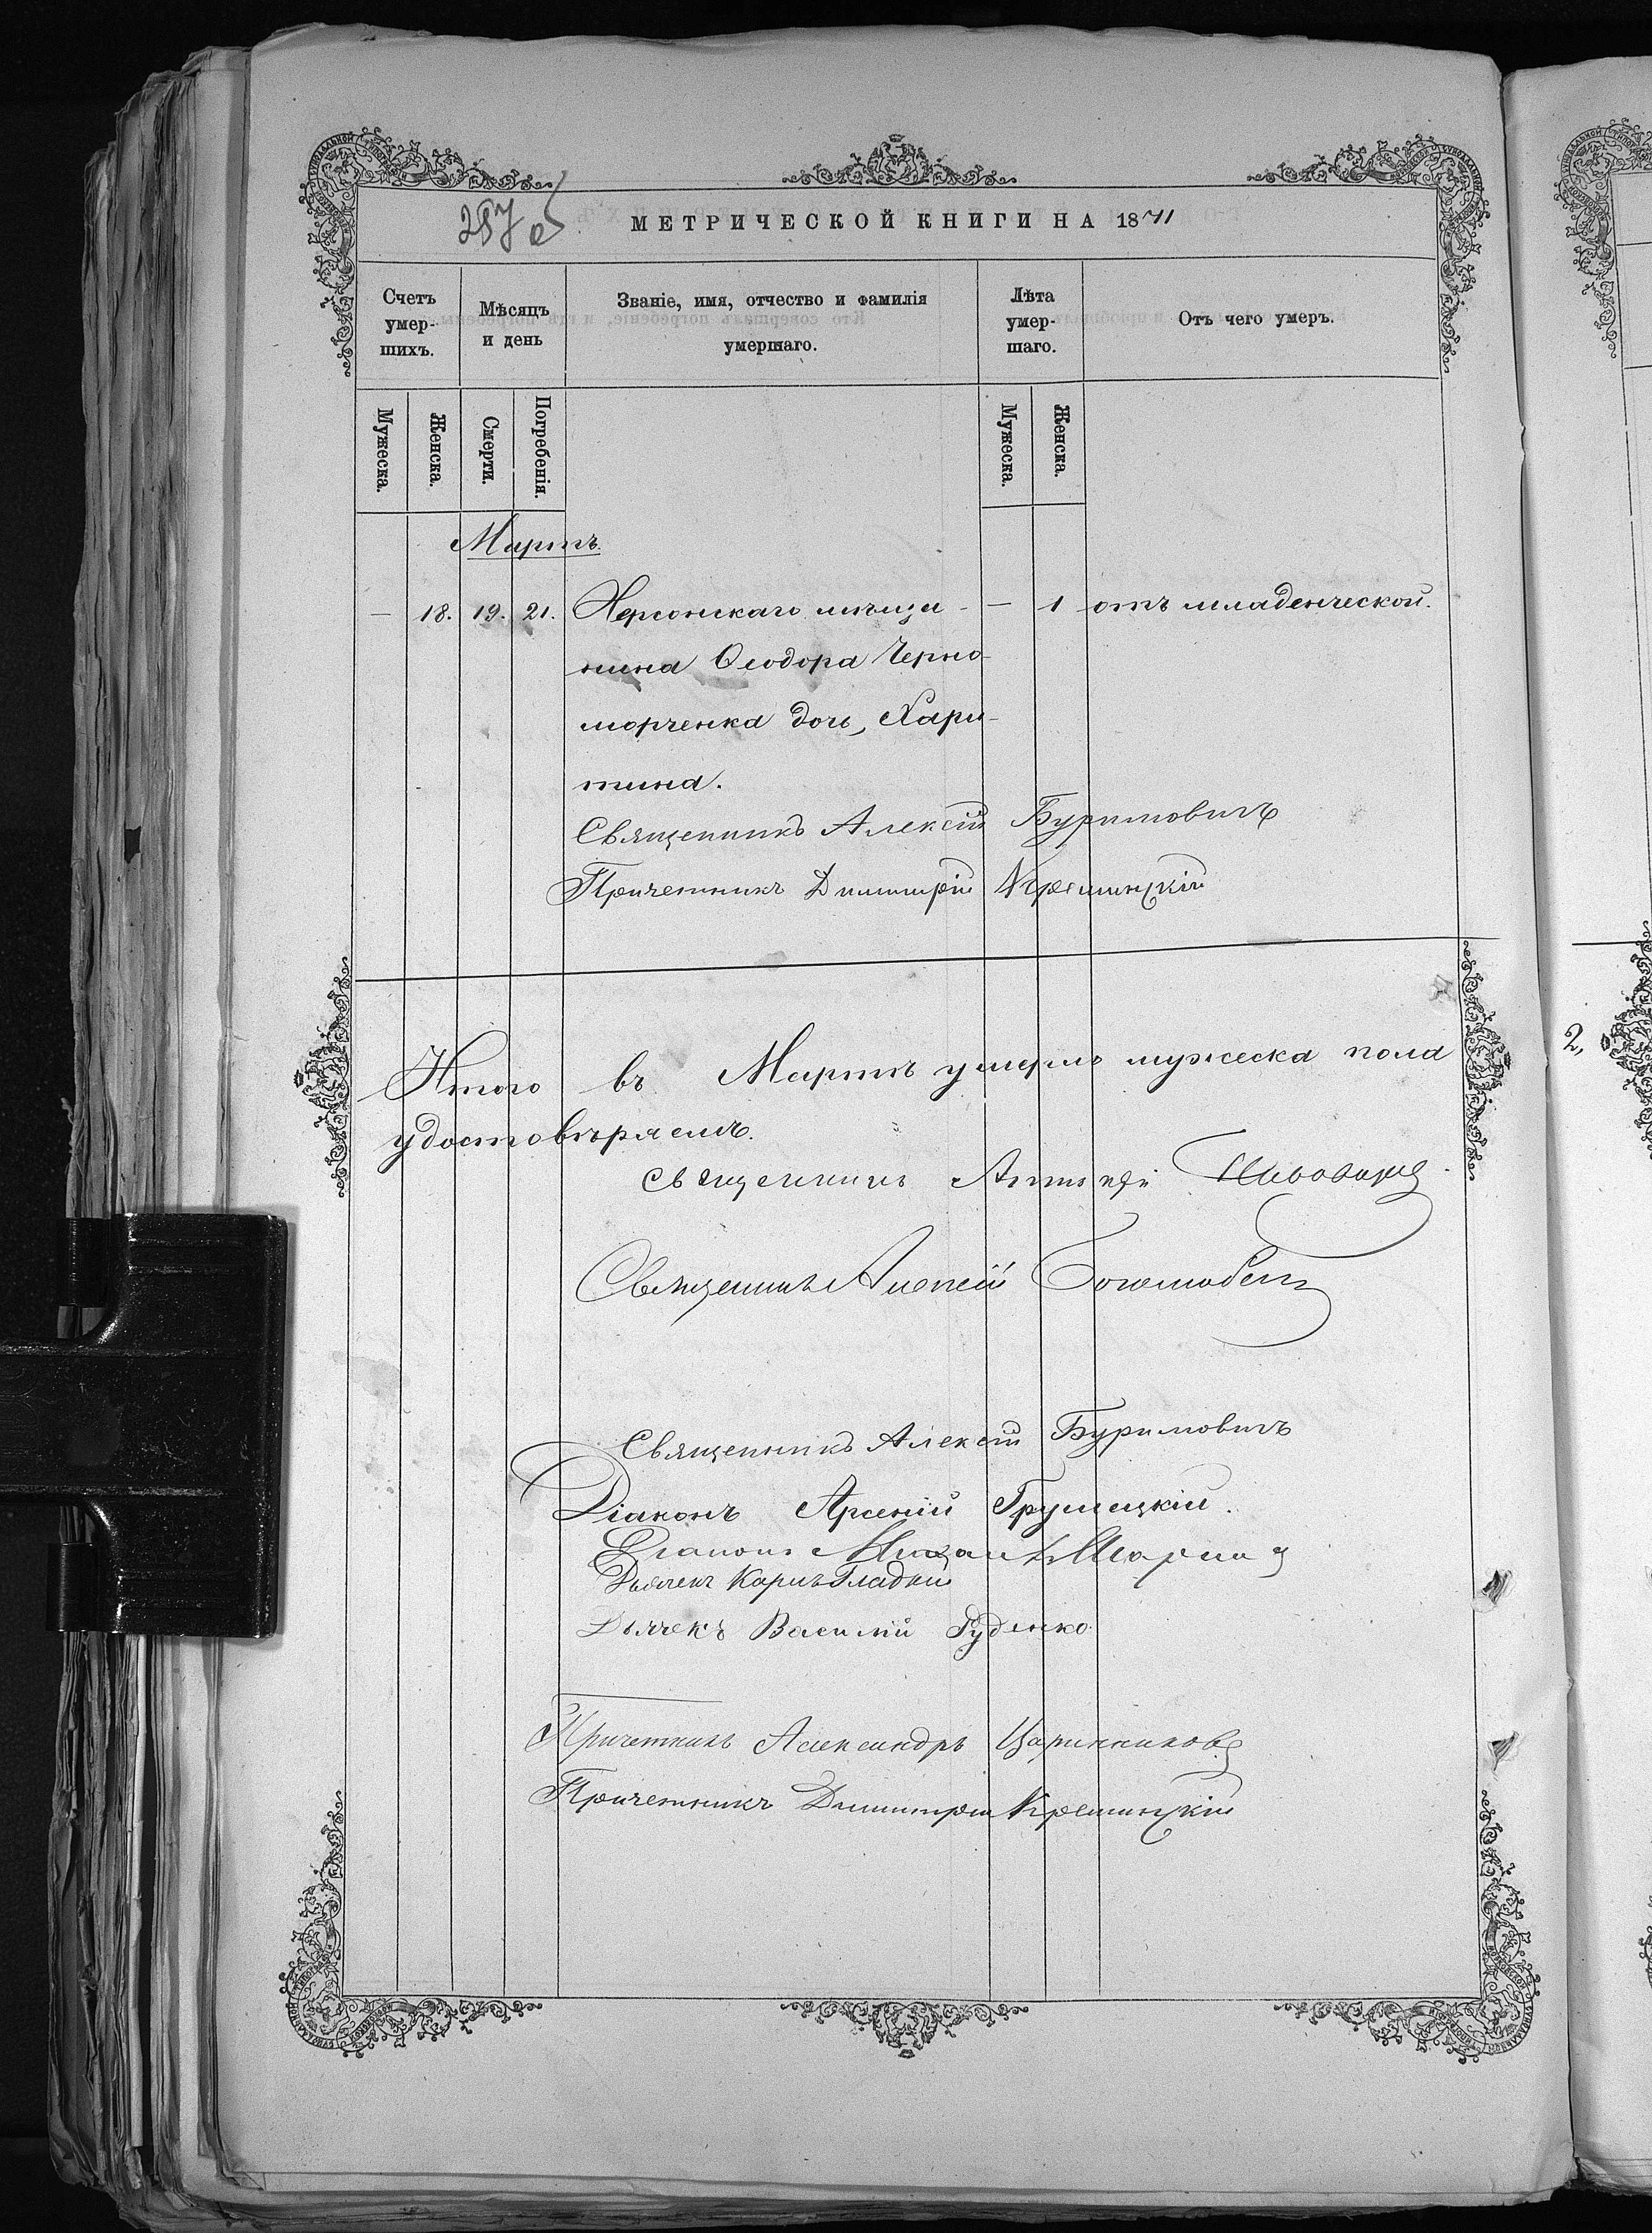 257 об
МЕТРИЧЕСКОЙ КНИГИ НА 1871
Счетъ умер-шихъ.
Мѣсяцъ и день
Званіе, имя, отчество и фамилія умершаго.
Лѣта умер-шаго.
Отъ чего умеръ.
Мужеска.
Женска.
Смерти.
Погребенія.
Мужеска.
Женска.
Мартъ.
— 18. 19. 21. Херсонскаго мѣща- — 1 отъ младенческой.
нина Ѳеодора Черно-
морченка дочь, Хари-
тина.
Священникъ Алексій Буримовичъ
Причетникъ Димитрій Креминскій
Итого въ Мартѣ умерло мужеска пола
2,
удостовѣряемъ.
Священникъ
Священникъ Алексій
Священникъ Алексій Буримовичъ
Діаконъ Арсеній Грушецкій.
Діаконъ Михаилъ
Дьячекъ Карпъ Гладкий
Дьячекъ Василий Гуденко
Причетникъ Александръ Царинниковъ
Причетникъ Димитрій Креминскій